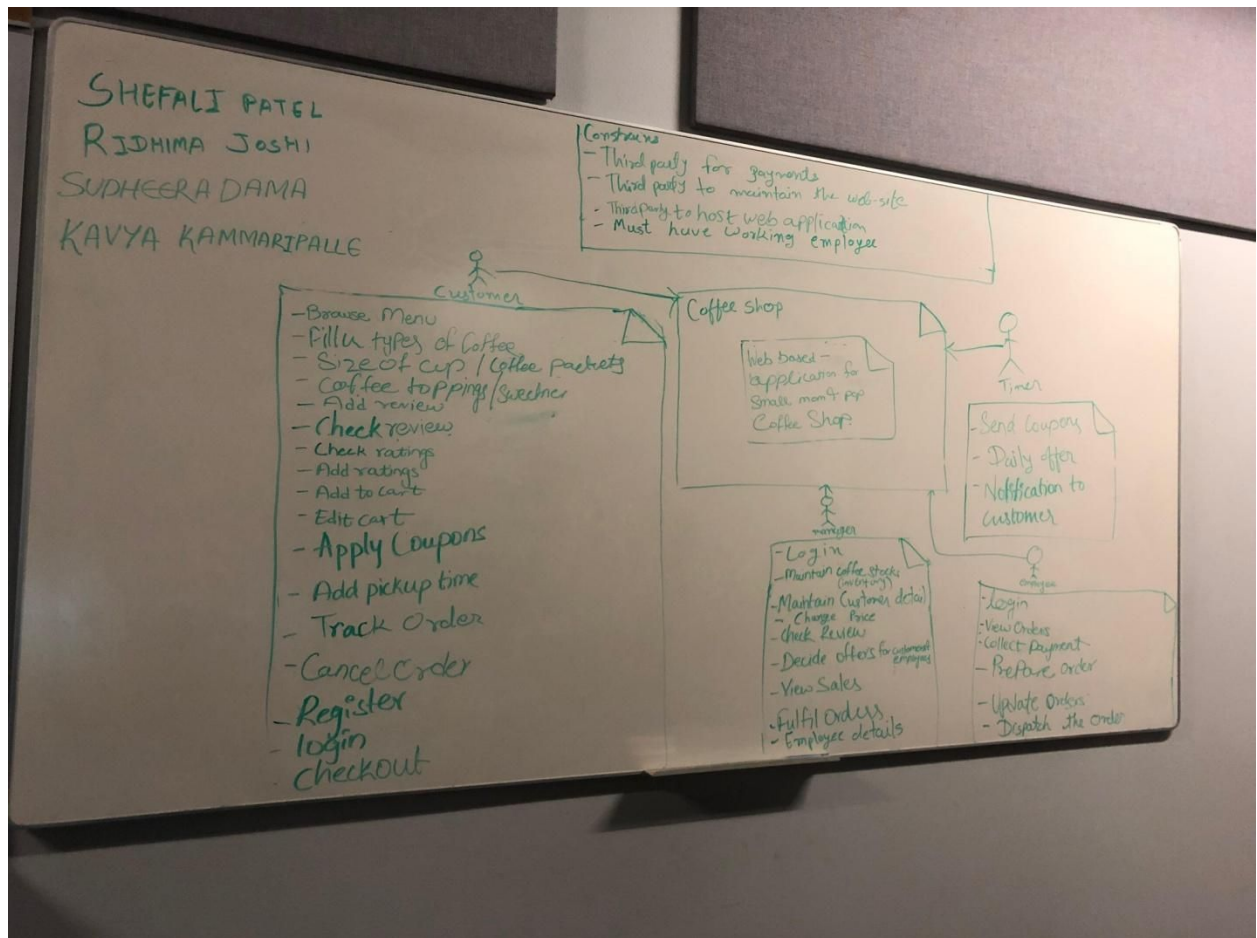 SHEFALI PATEL
RIDHIMA JOSHI
SUDHEERA DAMA
KAVYA KAMMARIPALLE
Constrains
- Third party for payments
- Third party to maintain the web-site
- Third party to host web application
- Must have working employee
Customer
- Browse Menu
- Filter types of Coffee
- Size of cup / Coffee packets
- Coffee toppings/sweetner
- Add review
- Check review
- Check ratings
- Add ratings
- Add to cart
- Edit cart
- Apply Coupons
- Add pickup time
- Track Order
- Cancel Order
- Register
- login
- checkout
Coffee shop
Web based -
application for
small mom & pop
Coffee Shop.
Timer
- Send Coupons
- Daily offer
- Notification to
customer
manager
- Login
- Maintain coffee stocks
(inventory)
- Maintain Customer detail
- Change Price
- Check Review
- Decide offers for customers
employees
- View Sales
- Fulfil Orders
- Employee details
employee
- login
- View Orders
- Collect payment
- Prepare order
- Update Orders
- Dispatch the order